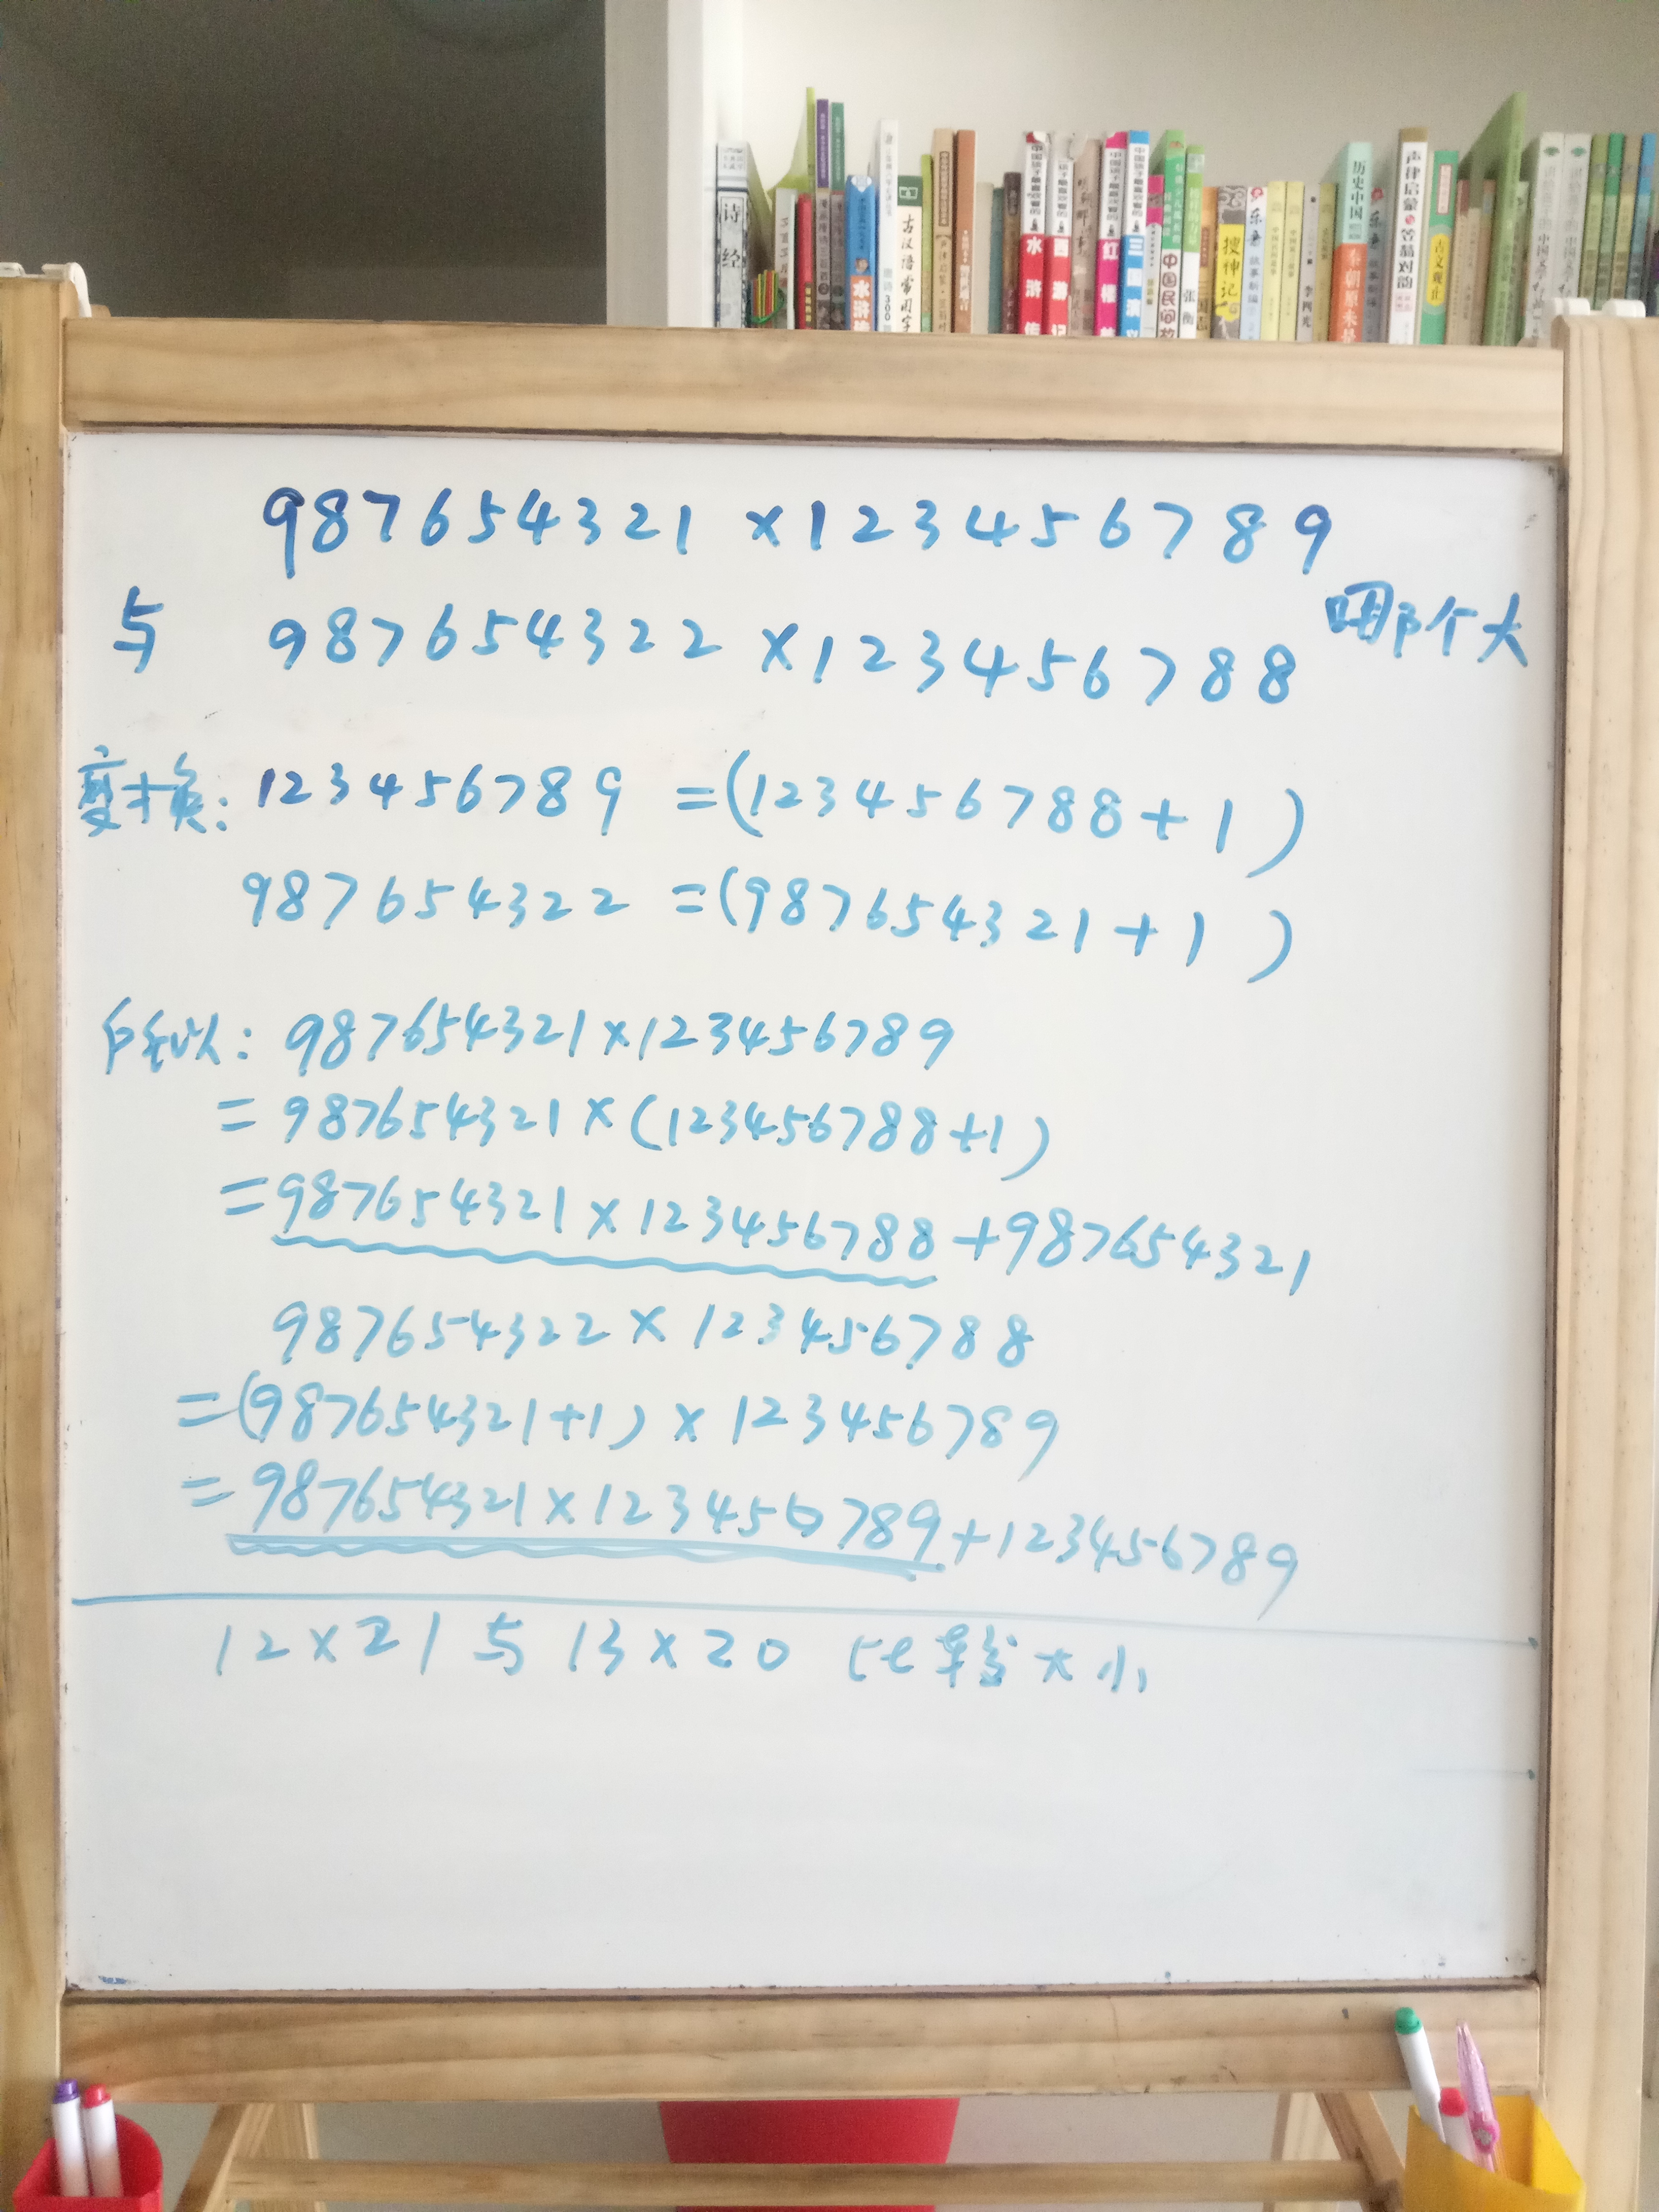 诗经
水浒传
古汉语常用字
水浒传
西游记
红楼
三国演义
中国民间故
张衡
搜神记
李四光
历史中国
秦朝原来是
声律启蒙
笠翁对韵
古文观止
987654321×123456789
与 987654322×123456788 哪个大
变换: 123456789=(123456788+1)
987654322=(987654321+1)
所以: 987654321×123456789
=987654321×(123456788+1)
=987654321×123456788+987654321
987654322×123456788
=(987654321+1)×123456789
=987654321×123456789+123456789
12×21与13×20 比较大小